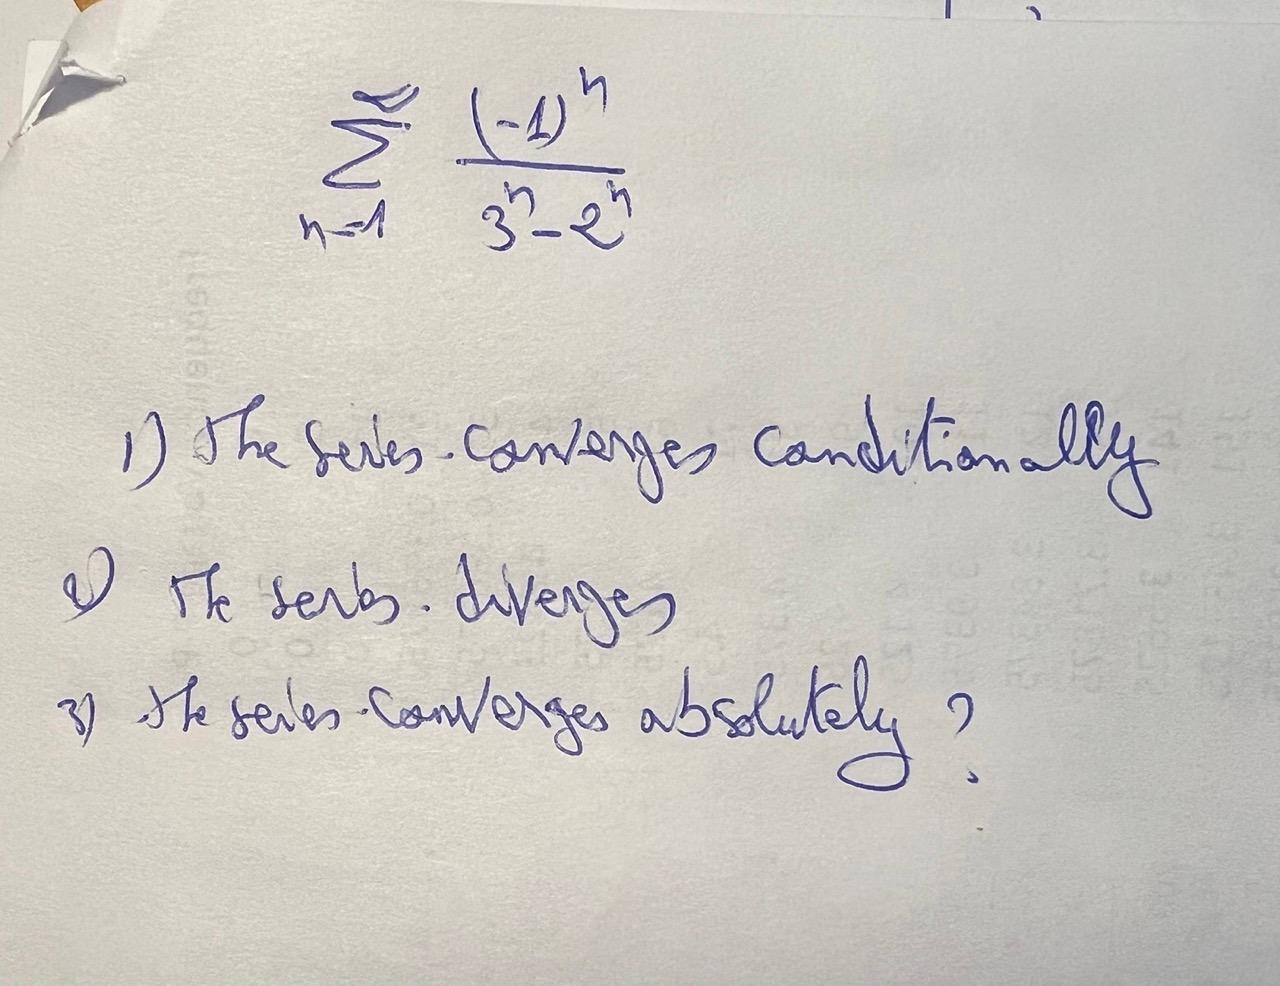 ∞
∑ (-1)^n / (3^n - 2^n)
n=1
1) The series converges conditionally
2) The series diverges
3) the series converges absolutely ?